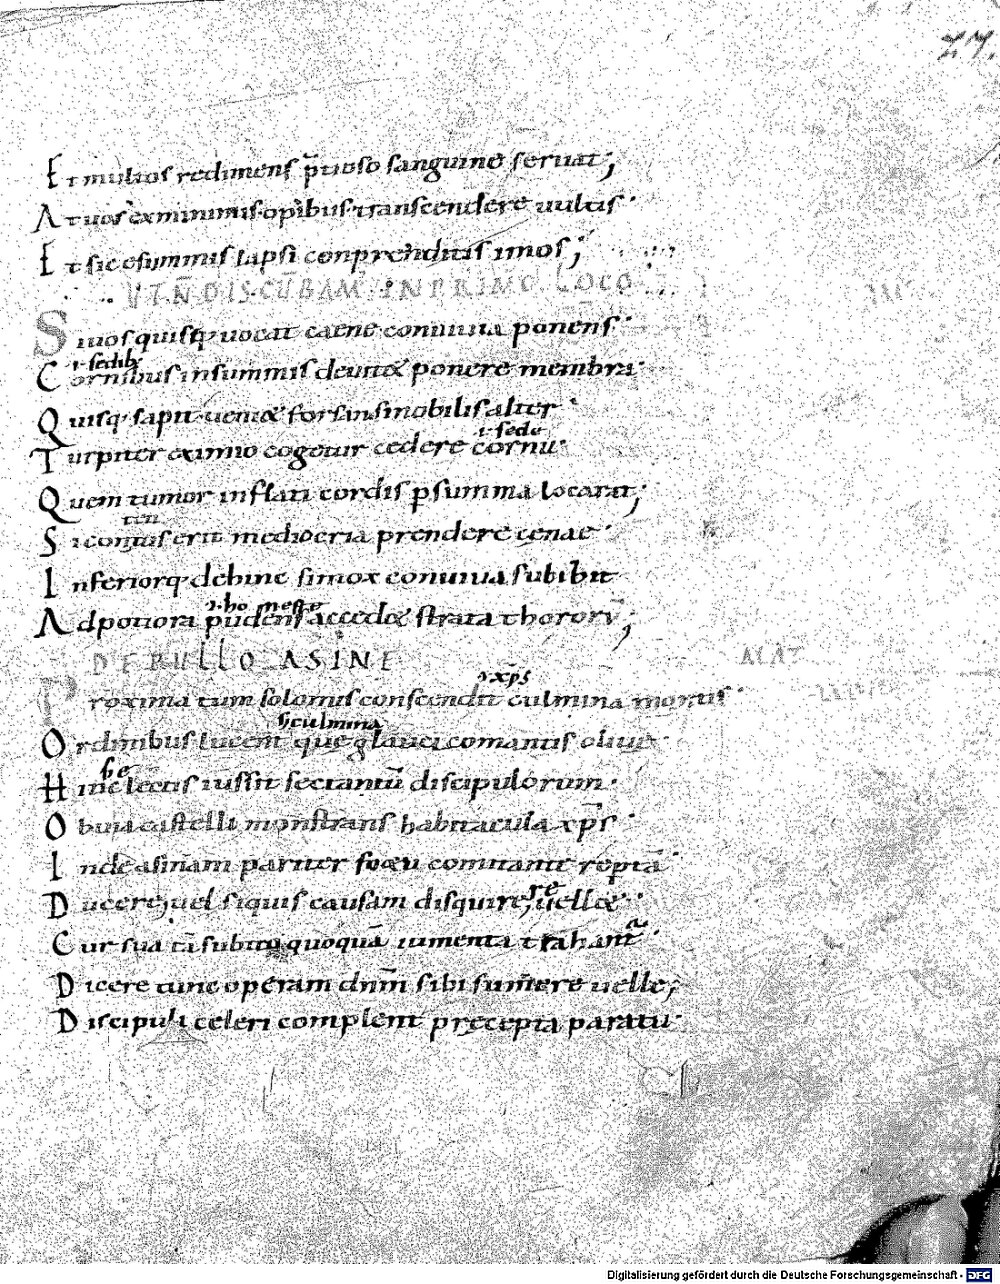 27.
Et multos redimens p̄tioso sanguine seruat;
At uos exminimis opibus transcendere uultis·
Et sic esummis lapsi conprenditis imos;
VT N̄ DISCŪBAM INPRIMO LOCO
Si uos quisq; uocat caene conuiuia ponens·
ł sedib;
Cornibus insummis deuitet ponere membra·
Quisq· sapit· ueniet forsin si nobilis alter·
ł sede
Turpiter eximio cogetur cedere cornu·
Quem tumor inflati cordis p̲summa locarat;
ten
Si contus erit mediocria prendere cenae·
Inferiorq· dehinc si mox conuiua subibit
ł· ho neste
Ad potiora pudens accedet strata thororū;
DE PULLO ASINE
MAT
ł xp̄s
Proxima tum solomis conscendit culmina montis·
s· culmina
Ordinibus lucent que glauci comantis oliue·
Hinc lectis iussit sectantū discipulorum·
Obuia castelli monstrans habitacula xp̄s·
Inde asinam pariter foetu comitante reptā·
re
Ducere, uel siquis causam disquire, uellet·
Cur sua tā subito quoquā iumenta trahant·
Dicere tunc operam dnm̄ sibi sumere uelle;
Discipuli celeri complent pręcepta paratu·
Digitalisierung gefördert durch die Deutsche Forschungsgemeinschaft - DFG